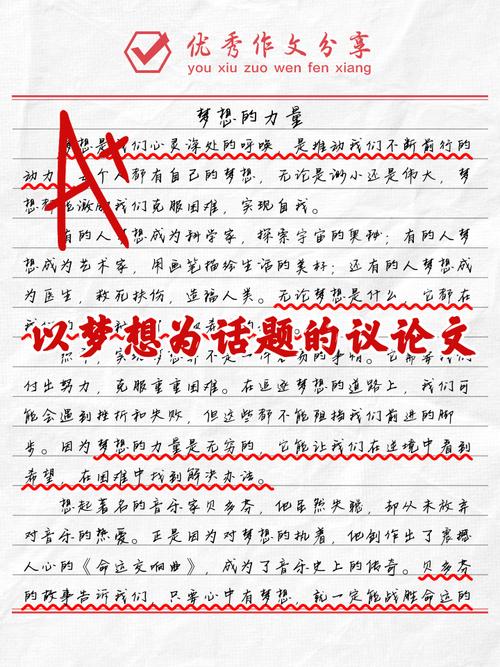 优秀作文分享
you xiu zuo wen fen xiang
梦想的力量
想是我们心灵深处的呼唤，是推动我们不断前行的
动力。个人都有自己的梦想，无论是渺小还是伟大，梦
想都激我们克服困难，实现自我。
有的人梦想成为科学家，探索宇宙的奥秘；有的人梦
想成为艺术家，用画笔描绘生活的美好；还有的人梦想
成为医生，救死扶伤，造福人类。无论梦想是什么，它都在
以梦想为话题的议论文
付出努力，克服重重困难。在追逐梦想的道路上，我们可
能会遇到挫折和失败，但这些都不能阻挡我们前进的脚
步。因为梦想的力量是无穷的，它能让我们在逆境中看到
希望，在困难中找到解决办法。
想起著名的音乐家贝多芬，他虽然失聪，却从未放弃
对音乐的热爱。正是因为对梦想的执着，他创作出了震撼
人心的《命运交响曲》，成为了音乐史上的传奇。贝多芬
的故事告诉我们，只要心中有梦想，就一定能战胜命运的
A+